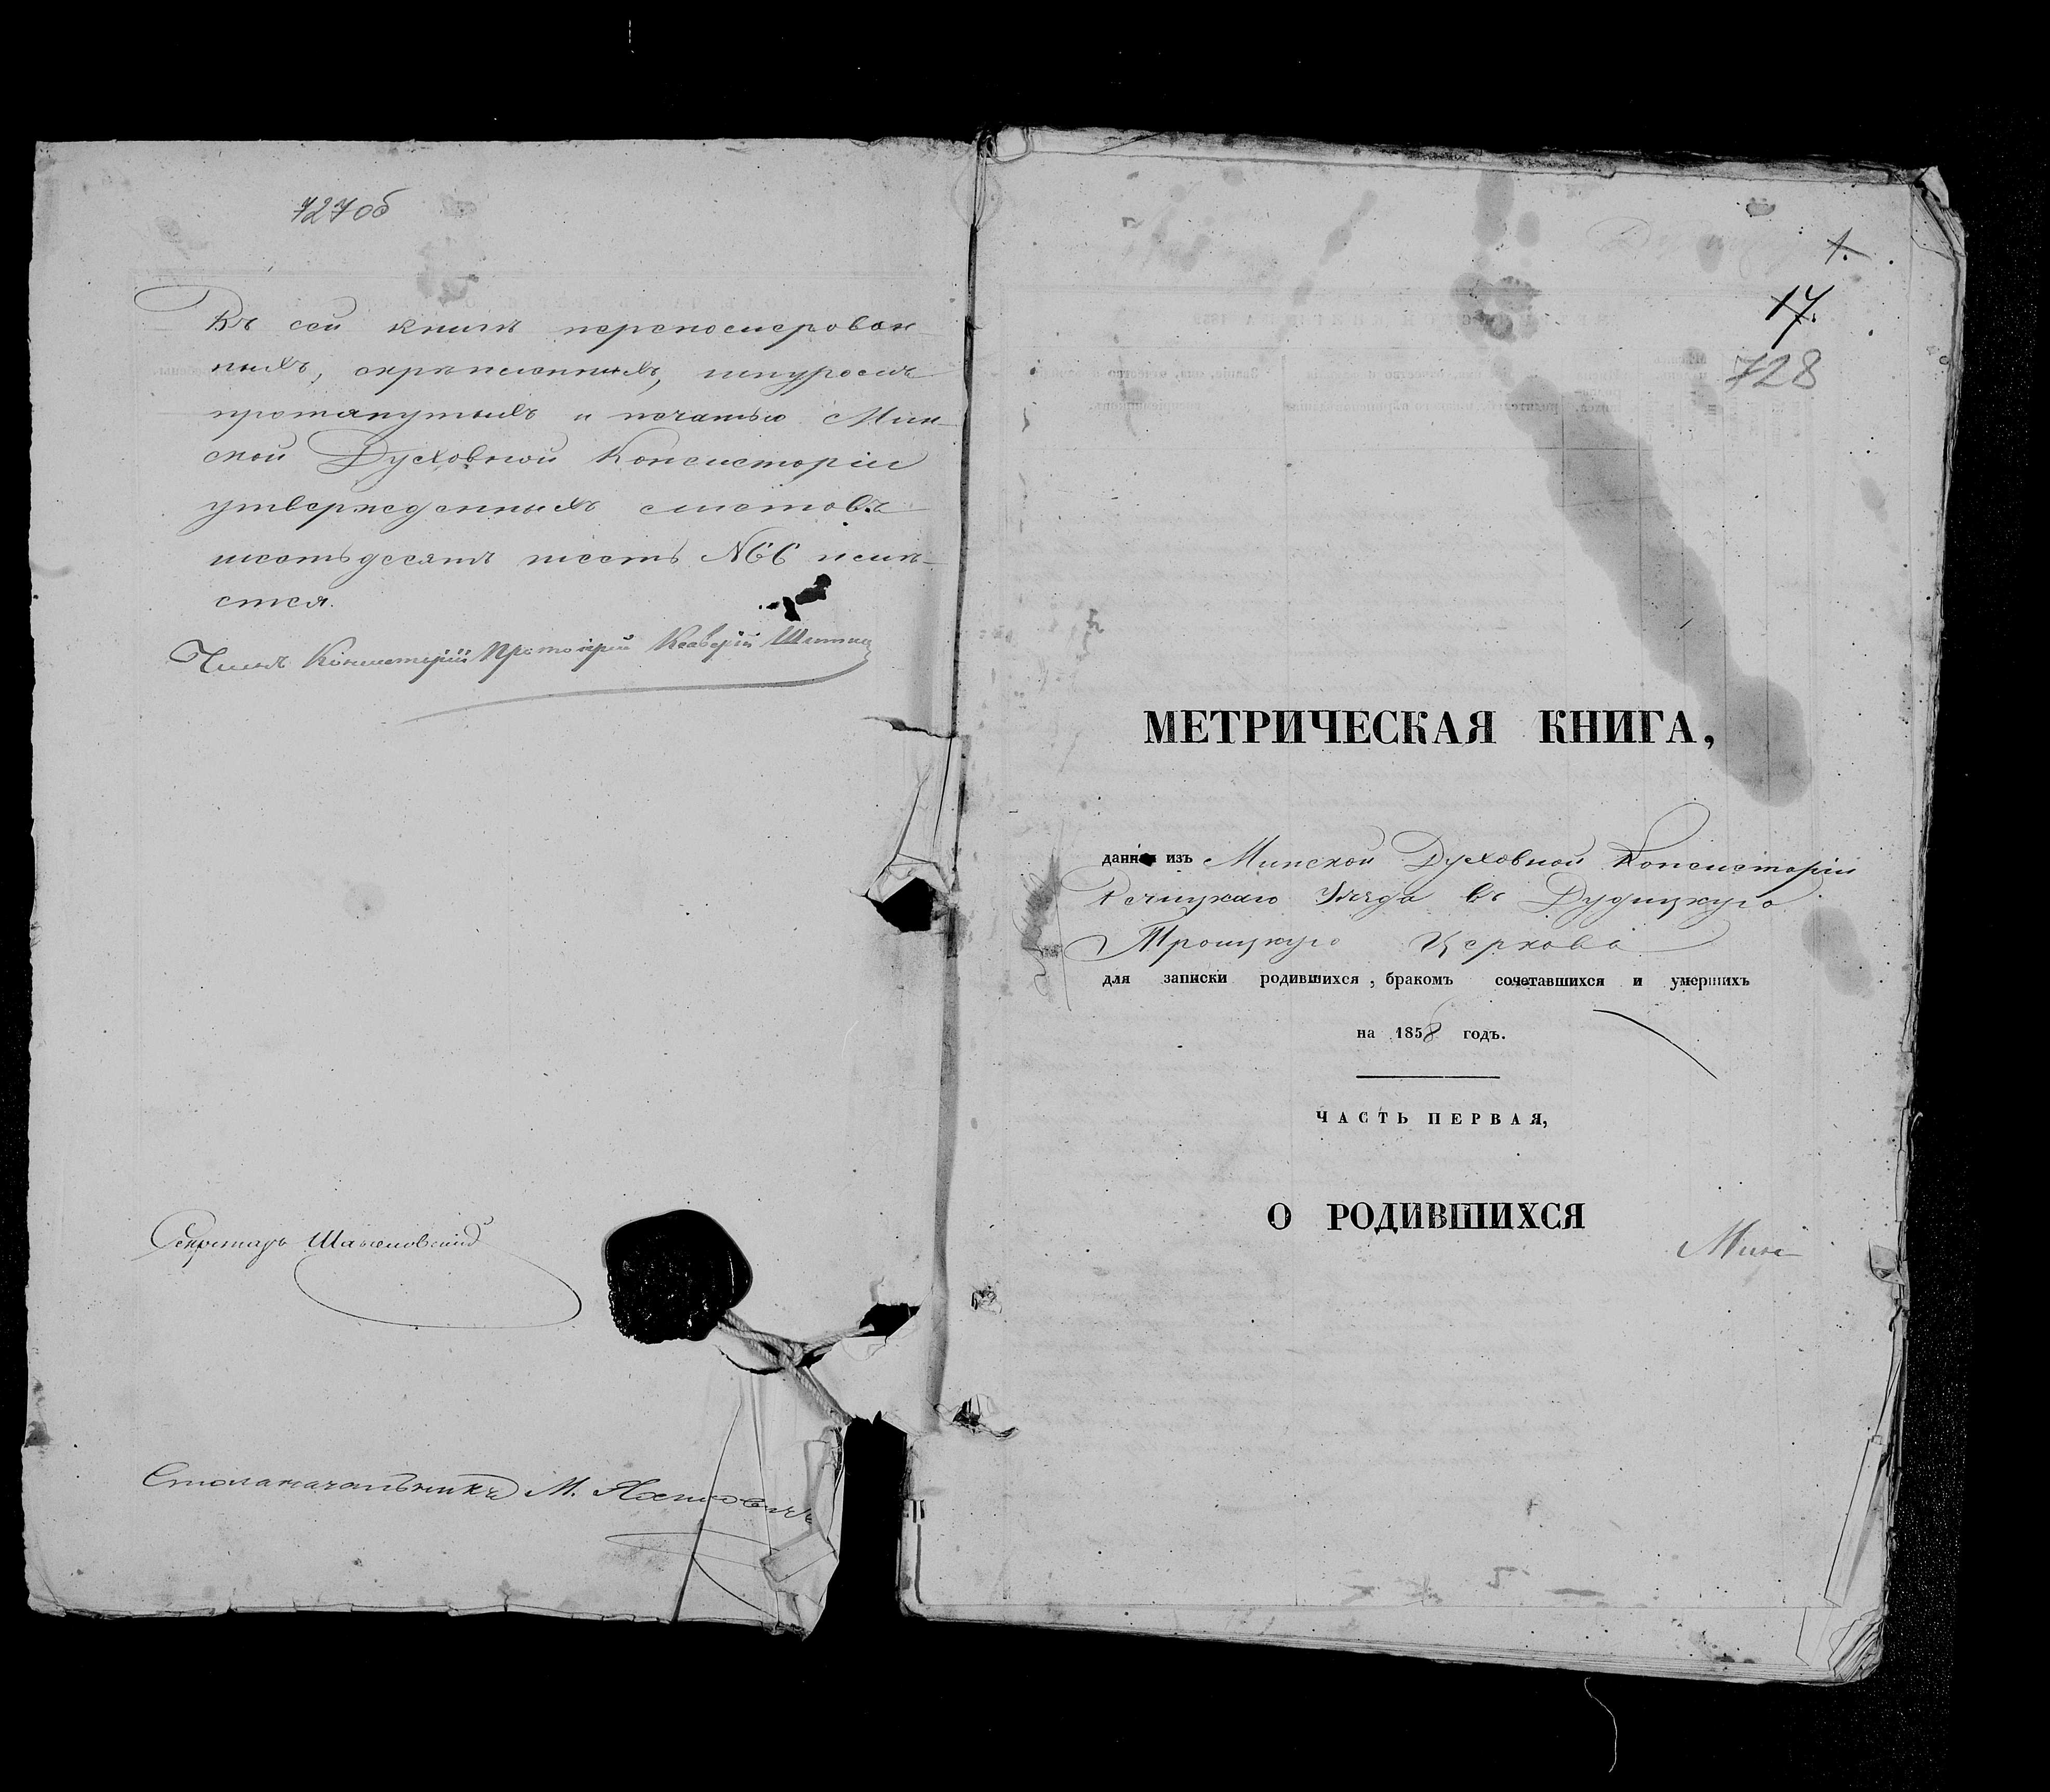 727об
Въ сей книгѣ перепомерован-
ныхъ, скрѣпленныхъ, шнуромъ
протянутыхъ и печатью Мин-
ской Духовной Консисторіи
утвержденныхъ листовъ
шестьдесятъ шесть N66 имѣ-
ется.
Членъ Консисторіи Протоіерей Ксаверій
Секретарь
Столоначальникъ М.
1.
17.
728
МЕТРИЧЕСКАЯ КНИГА,
данная изъ Минской Духовной Консисторіи
Рѣчицкаго Уѣзда въ Дудицкую
Троицкую Церковь
для записки родившихся, бракомъ сочетавшихся и умершихъ
на 1858 годъ.
ЧАСТЬ ПЕРВАЯ,
О РОДИВШИХСЯ
Мин-